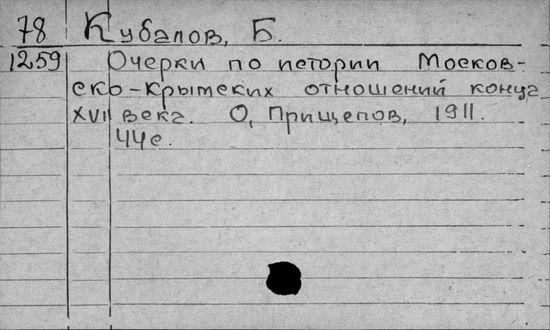 78 Кубалов, Б.
1259 Очерки по истории Москов-
ско-крымских отношений конца
XVII века. О, Прищепов, 1911.
44с.